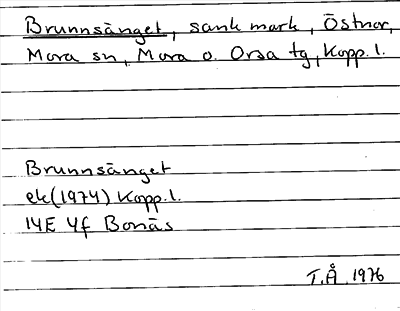 Brunnsänget, sank mark, Östnor,
Mora sn, Mora o. Orsa tg, Kopp. l.
Brunnsänget
ek (1974) Kopp. l.
14E 4f Bonäs
T.Å 1976